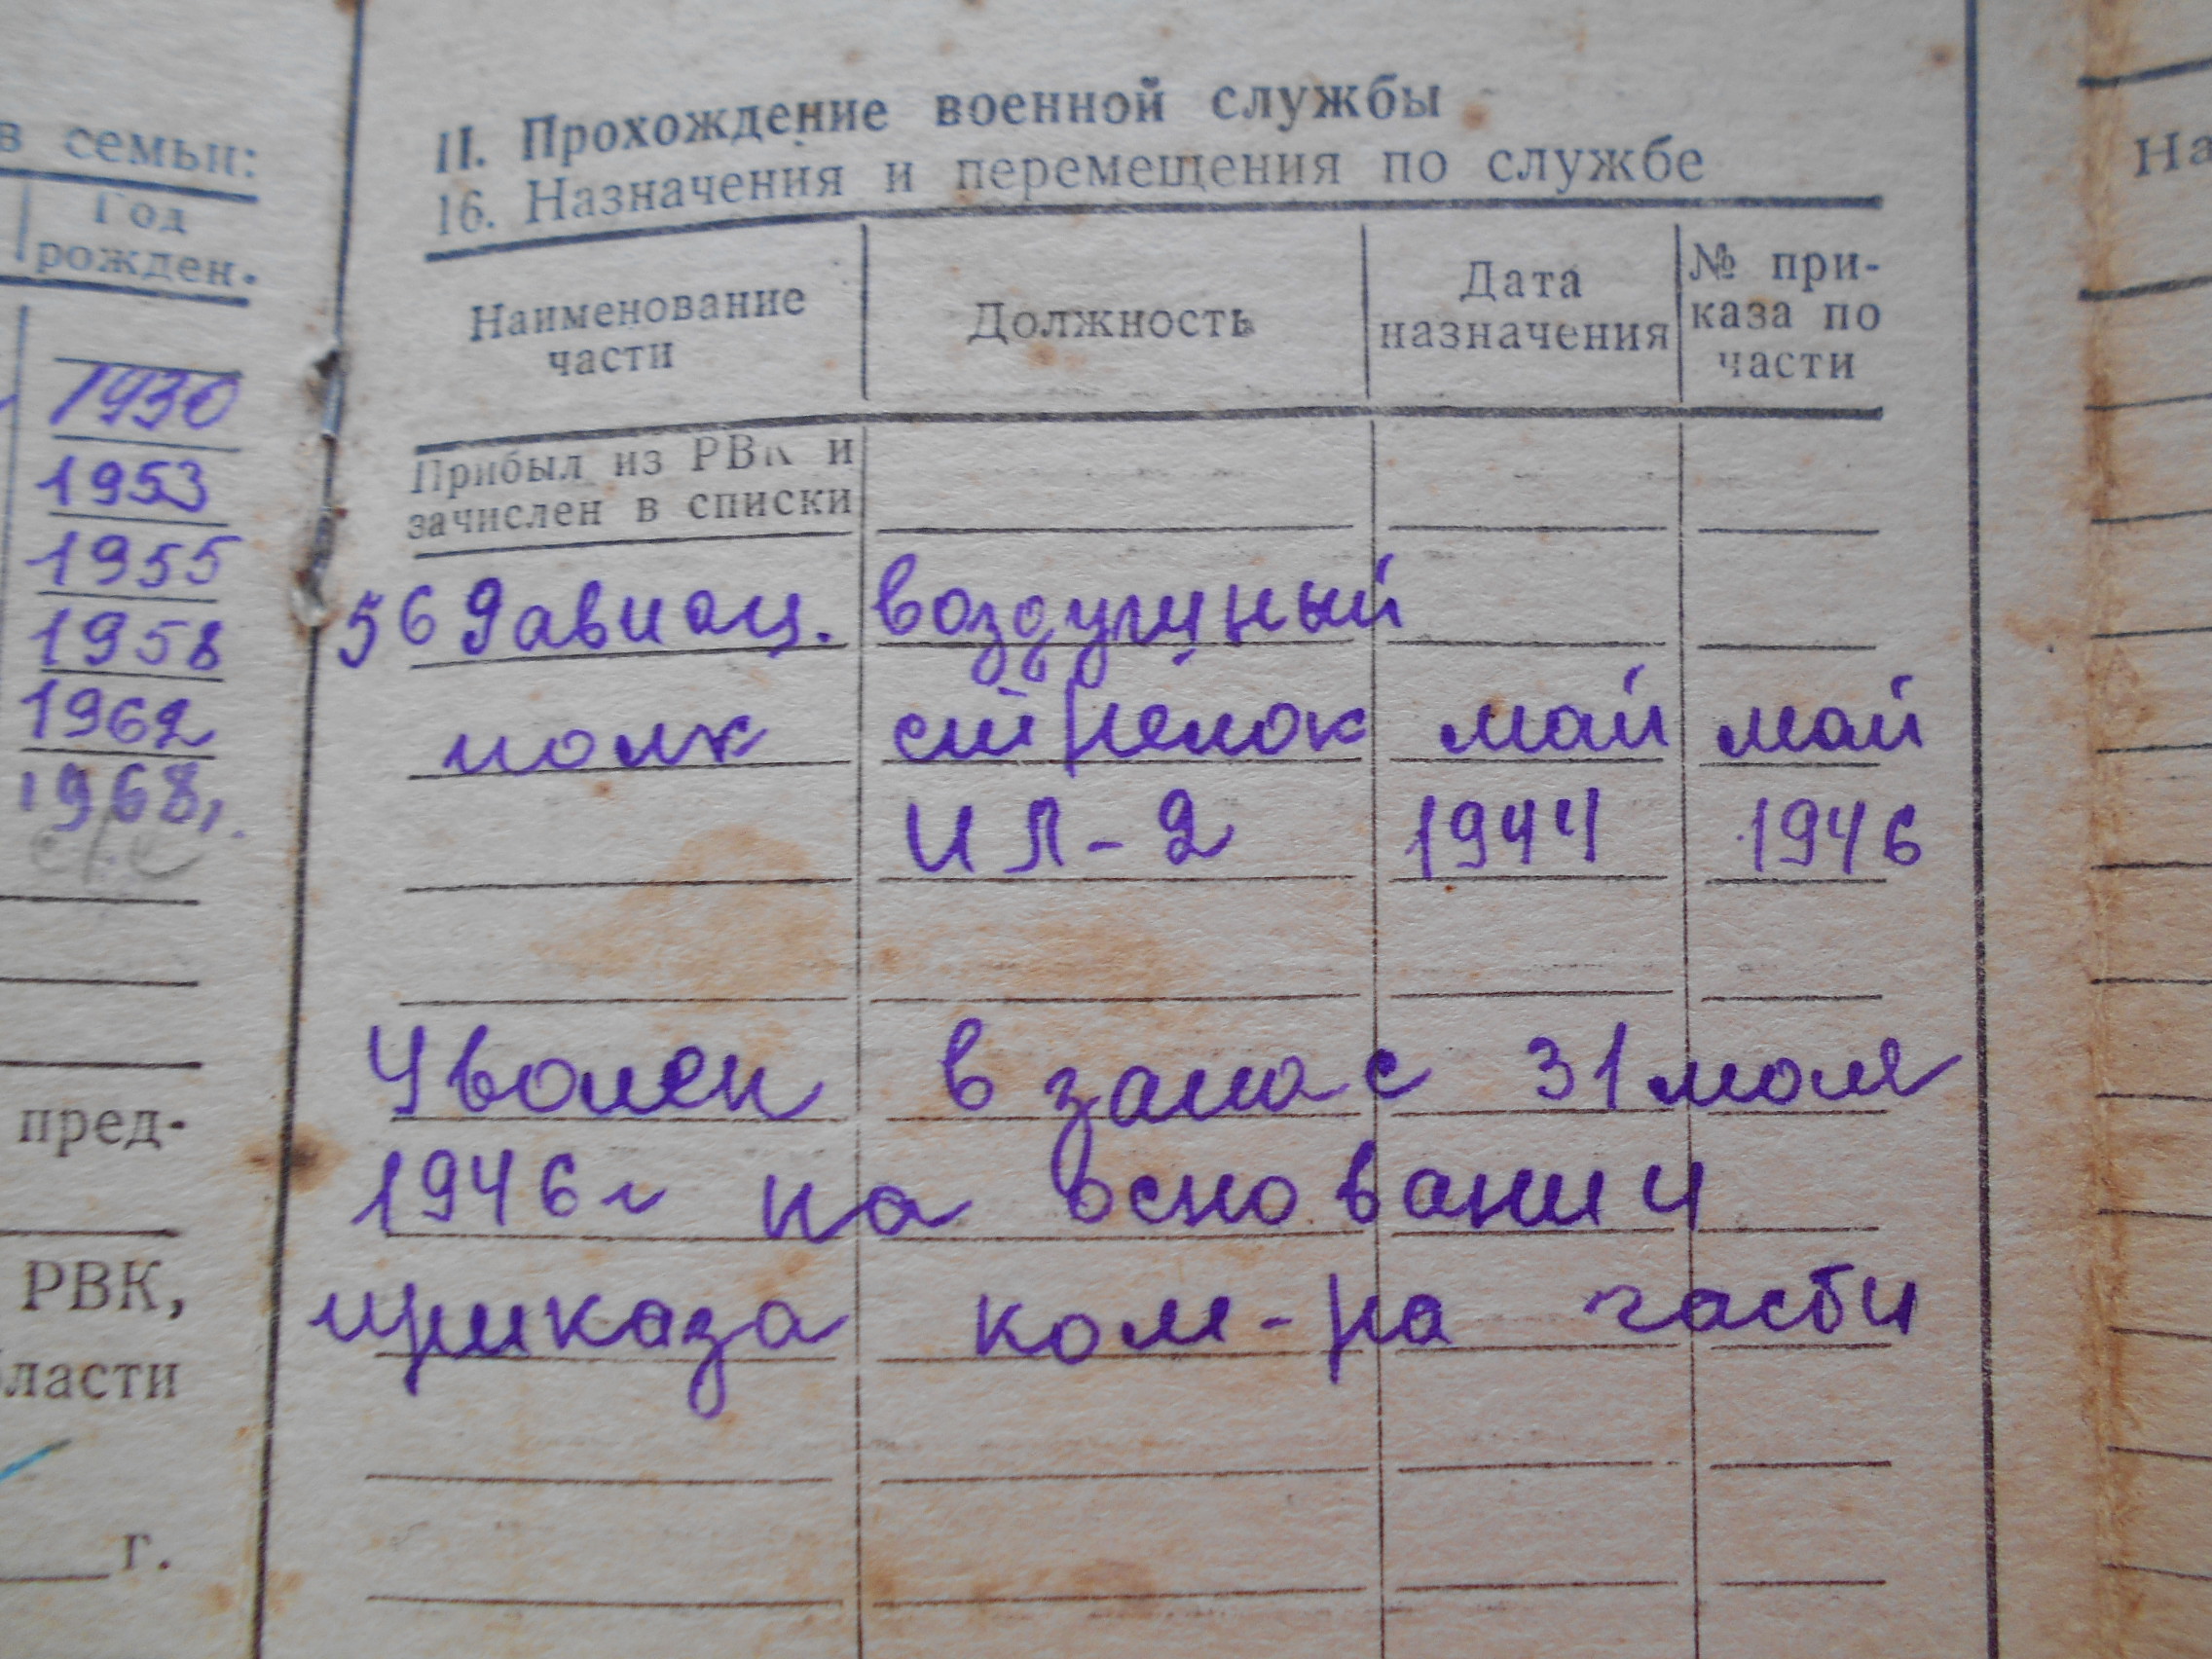 в семьи:
Год
рожден.
1930
1953
1955
1958
1962
1968,
пред-
РВК,
бласти
г.
II. Прохождение военной службы
16. Назначения и перемещения по службе
Наименование части Должность Дата назначения № при-каза по части
Прибыл из РВК и
зачислен в списки
569 авиац. воздушный
полк стрелок май май
ИЛ-2 1944 1946
Уволен в запас 31 мая
1946г на основании
приказа ком-ра части
На